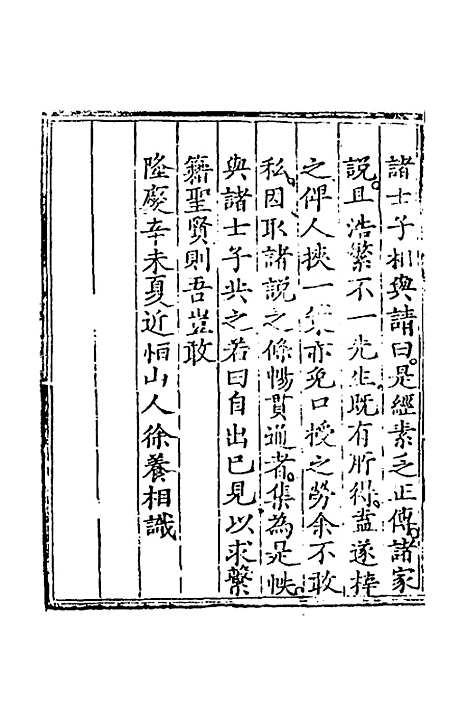 諸士子相與請曰是經素乏正傳諸家
說且浩繁不一先生旣有所得盍遂梓
之俾人挾一集亦免口授之勞余不敢
私因取諸說之條暢貫通者集為是帙
與諸士子共之若曰自出已見以求繫
籍聖賢則吾豈敢
隆慶辛未夏近恒山人徐養相識